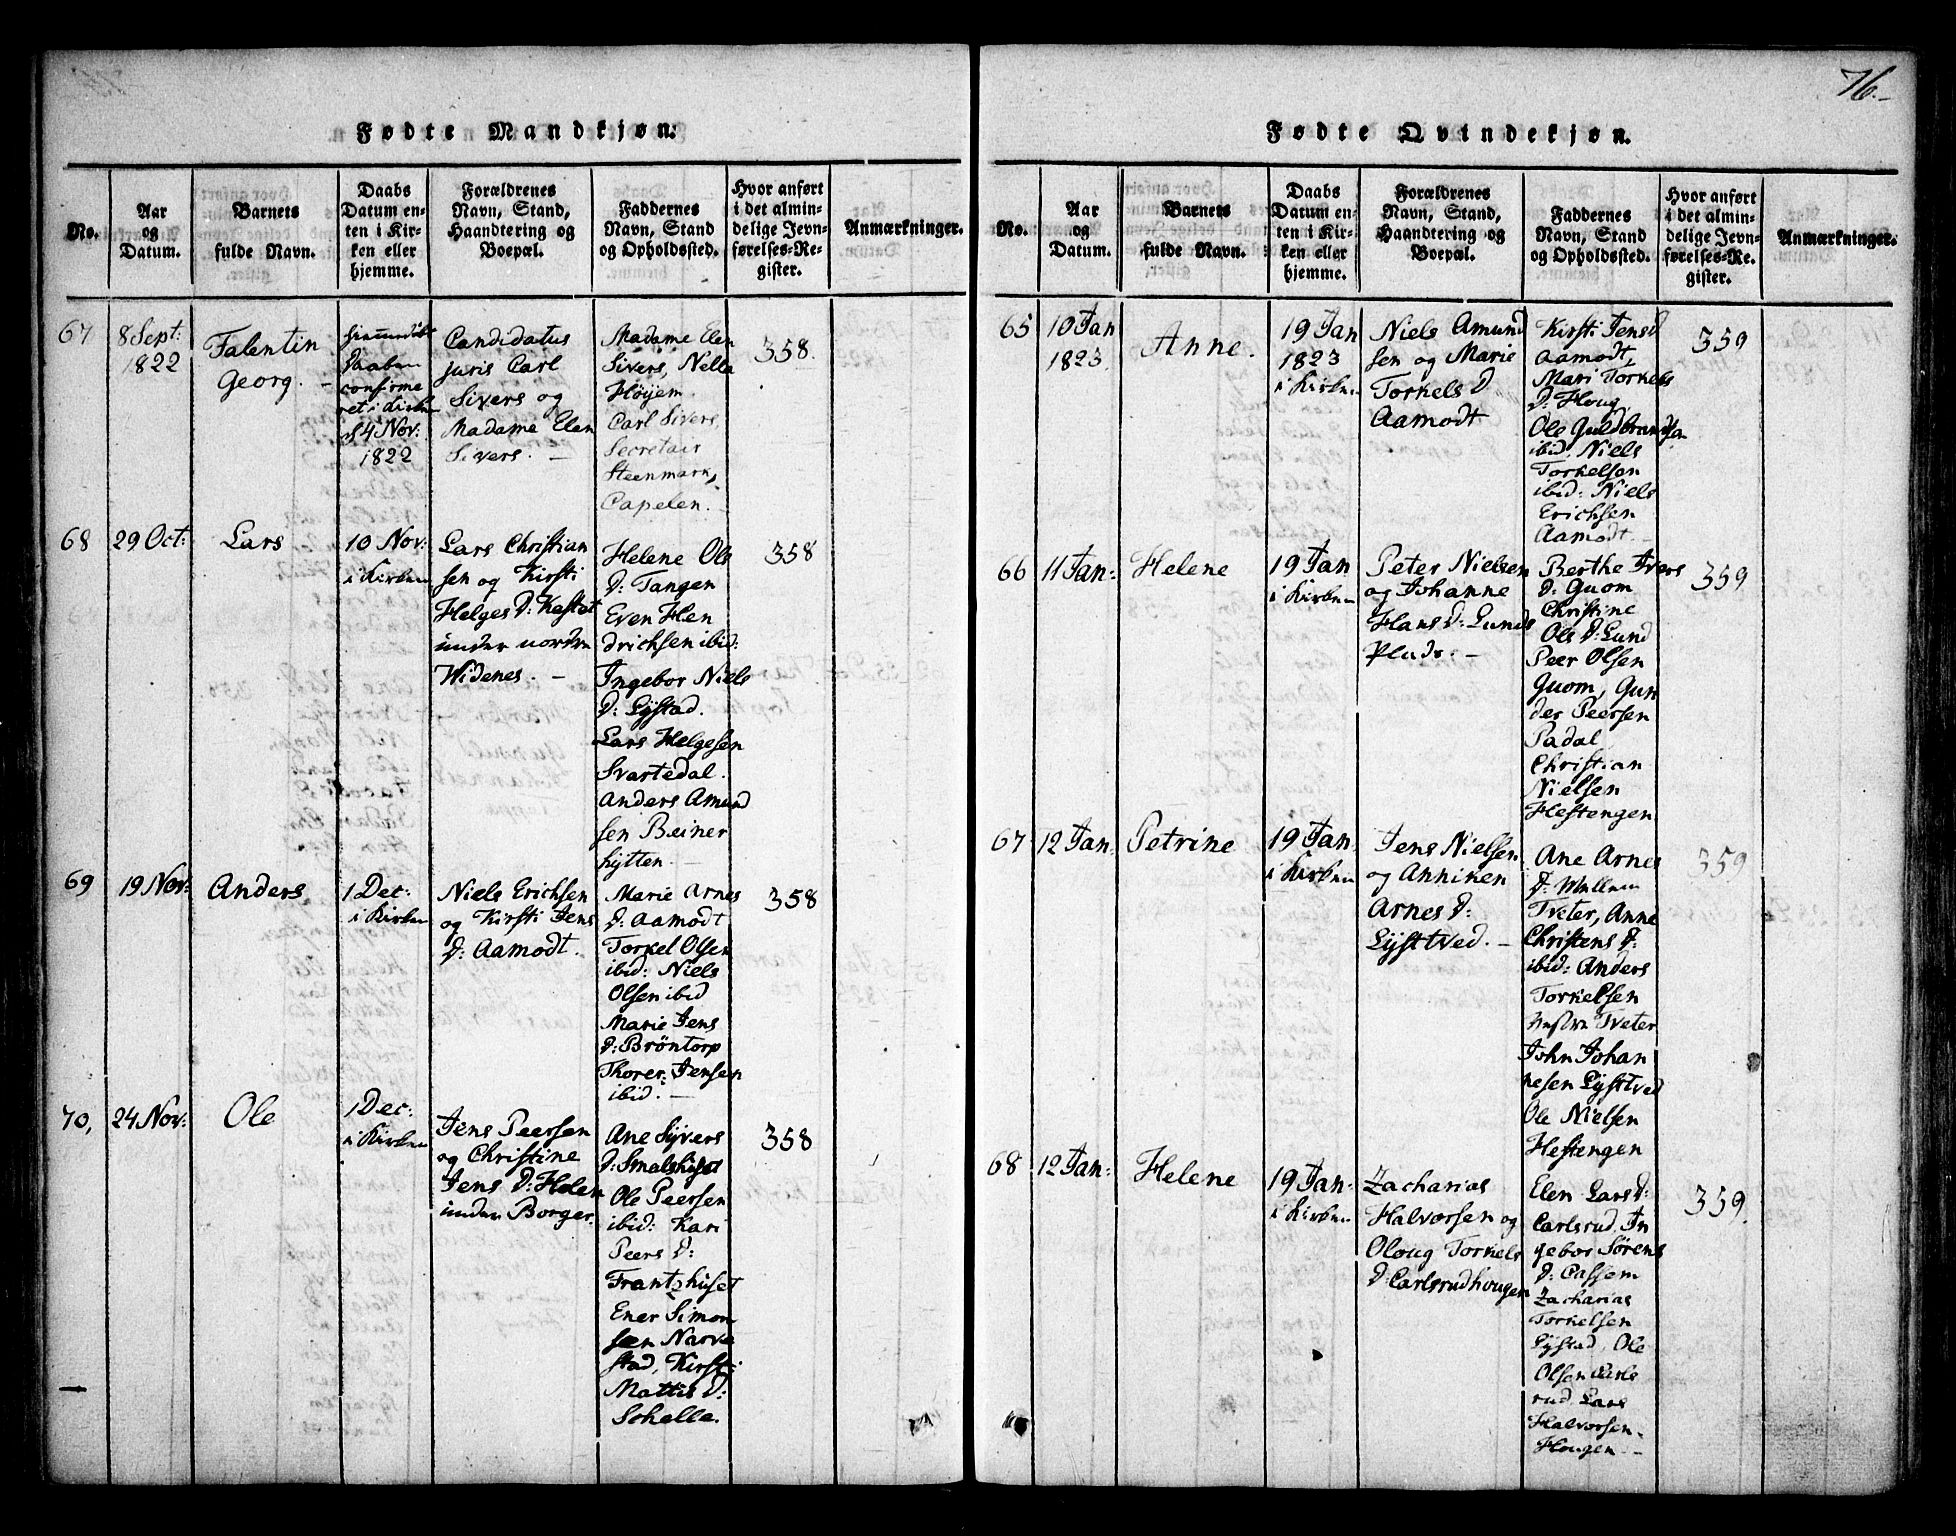 76.
Fødte Mandkjøn.
No.
Aar
og
Datum.
Barnets
fulde Navn.
Daabs
Datum en-
ten i Kir-
ken eller
hjemme.
Forældrenes
Navn, Stand,
Haandtering og
Boepæl.
Faddernes
Navn, Stand
og Opholdssted.
Hvor anført
i det almin-
delige Jevn-
førelses-Re-
gister.
Anmærkninger.
67
8 Sept:
1822
Falentin
Georg.
Daaben
confirme
ret i Kirken
d 4 Nov:
1822
Candidatus
juris Carl
Sivers og
Madame Elen
Sivers. —
Madame Elen
Sivers, Nella
Höyem
Carl Sivers,
Secretair
Steenmark,
Capelen.
358.
68
29 Oct:
Lars
10 Nov:
i Kirken
Lars Christian
sen og Kirsti
Helges D: Kastat
under nordre
Widenes. —
Helene Ols
D: Tangen
Even Hen
drichsen ibid:
Ingebor Niels
D: Lystad.
Lars Helgesen
Svartedal.
Anders Amund
sen Beiner
hytten. —
358
69
19 Nov:
Anders
1 Dec:
i Kirken
Niels Erichsen
og Kirsti Jens
D: Aamodt.
Marie Arnes
D: Aamodt
Torkel Olsen
ibid: Niels
Olsen ibid
Marie Jens
D: Bröntorp
Thorer Jensen
ibid. —
358
70,
24 Nov:
Ole
1 Dec:
i Kirken
Jens Peersen
og Christine
Jens D: Holen
under Borger.
Ane Syvers
D: Smalshuset
Ole Peersen
ibid: Kari
Peers D:
Frantzhuset
Ener Simon
sen Narve
stad, Kirsti
Mattis D:
Schelle.
358
Fødte Qvindekjøn.
No.
Aar
og
Datum.
Barnets
fulde Navn.
Daabs
Datum en-
ten i Kir-
ken eller
hjemme.
Forældrenes
Navn, Stand,
Haandtering og
Boepæl.
Faddernes
Navn, Stand
og Opholdssted.
Hvor anført
i det almin-
delige Jevn-
førelses-Re-
gister.
Anmærkninger.
65
10 Jan
1823.
Anne.
19 Jan
1823
i Kirken
Niels Amund
sen og Marie
Torkels D
Aamodt
Kirsti Jensd
Aamodt,
Mari Torkels
D: Houg
Ole Guldbrandsa.
ibid, Niels
Torkelsen
ibid: Niels
Erichsen
Aamodt. —
359
66
11 Jan:
Helene
19 Jan
i Kirken
Peter Nielsen
og Johanne
Hans D: Lunds
Plads. —
Berthe Ivers
D: Guom
Christine
Ols D: Lund
Peer Olsen
Guom, Gun
der Peersen
Padal
Christian
Nielsen
Hestengen
359
67
12 Jan:
Petrine
19 Jan.
i Kirken
Jens Nielsen
og Anniken
Arnes D:
Lysttved. —
Ane Arnes
D: Mellem
Tveter, Anne
Christens D:
ibid: Anders
Torkelsen
Tveter
John Johan
nesen Lysttved
Ole Nielsen
Hestengen
359
68
12 Jan:
Helene
19 Jan:
i Kirken
Zacharias
Halvorsen og
Oloug Torkels
D: Carlsrudhougen
Elen Lars D:
Carlsrud. In
gebor Sörens
D: Cassem
Zacharias
Torkelsen
Lystad, Ole
Olsen Carls
rud. Lars
Halvorsen.
Hougen. —
359.